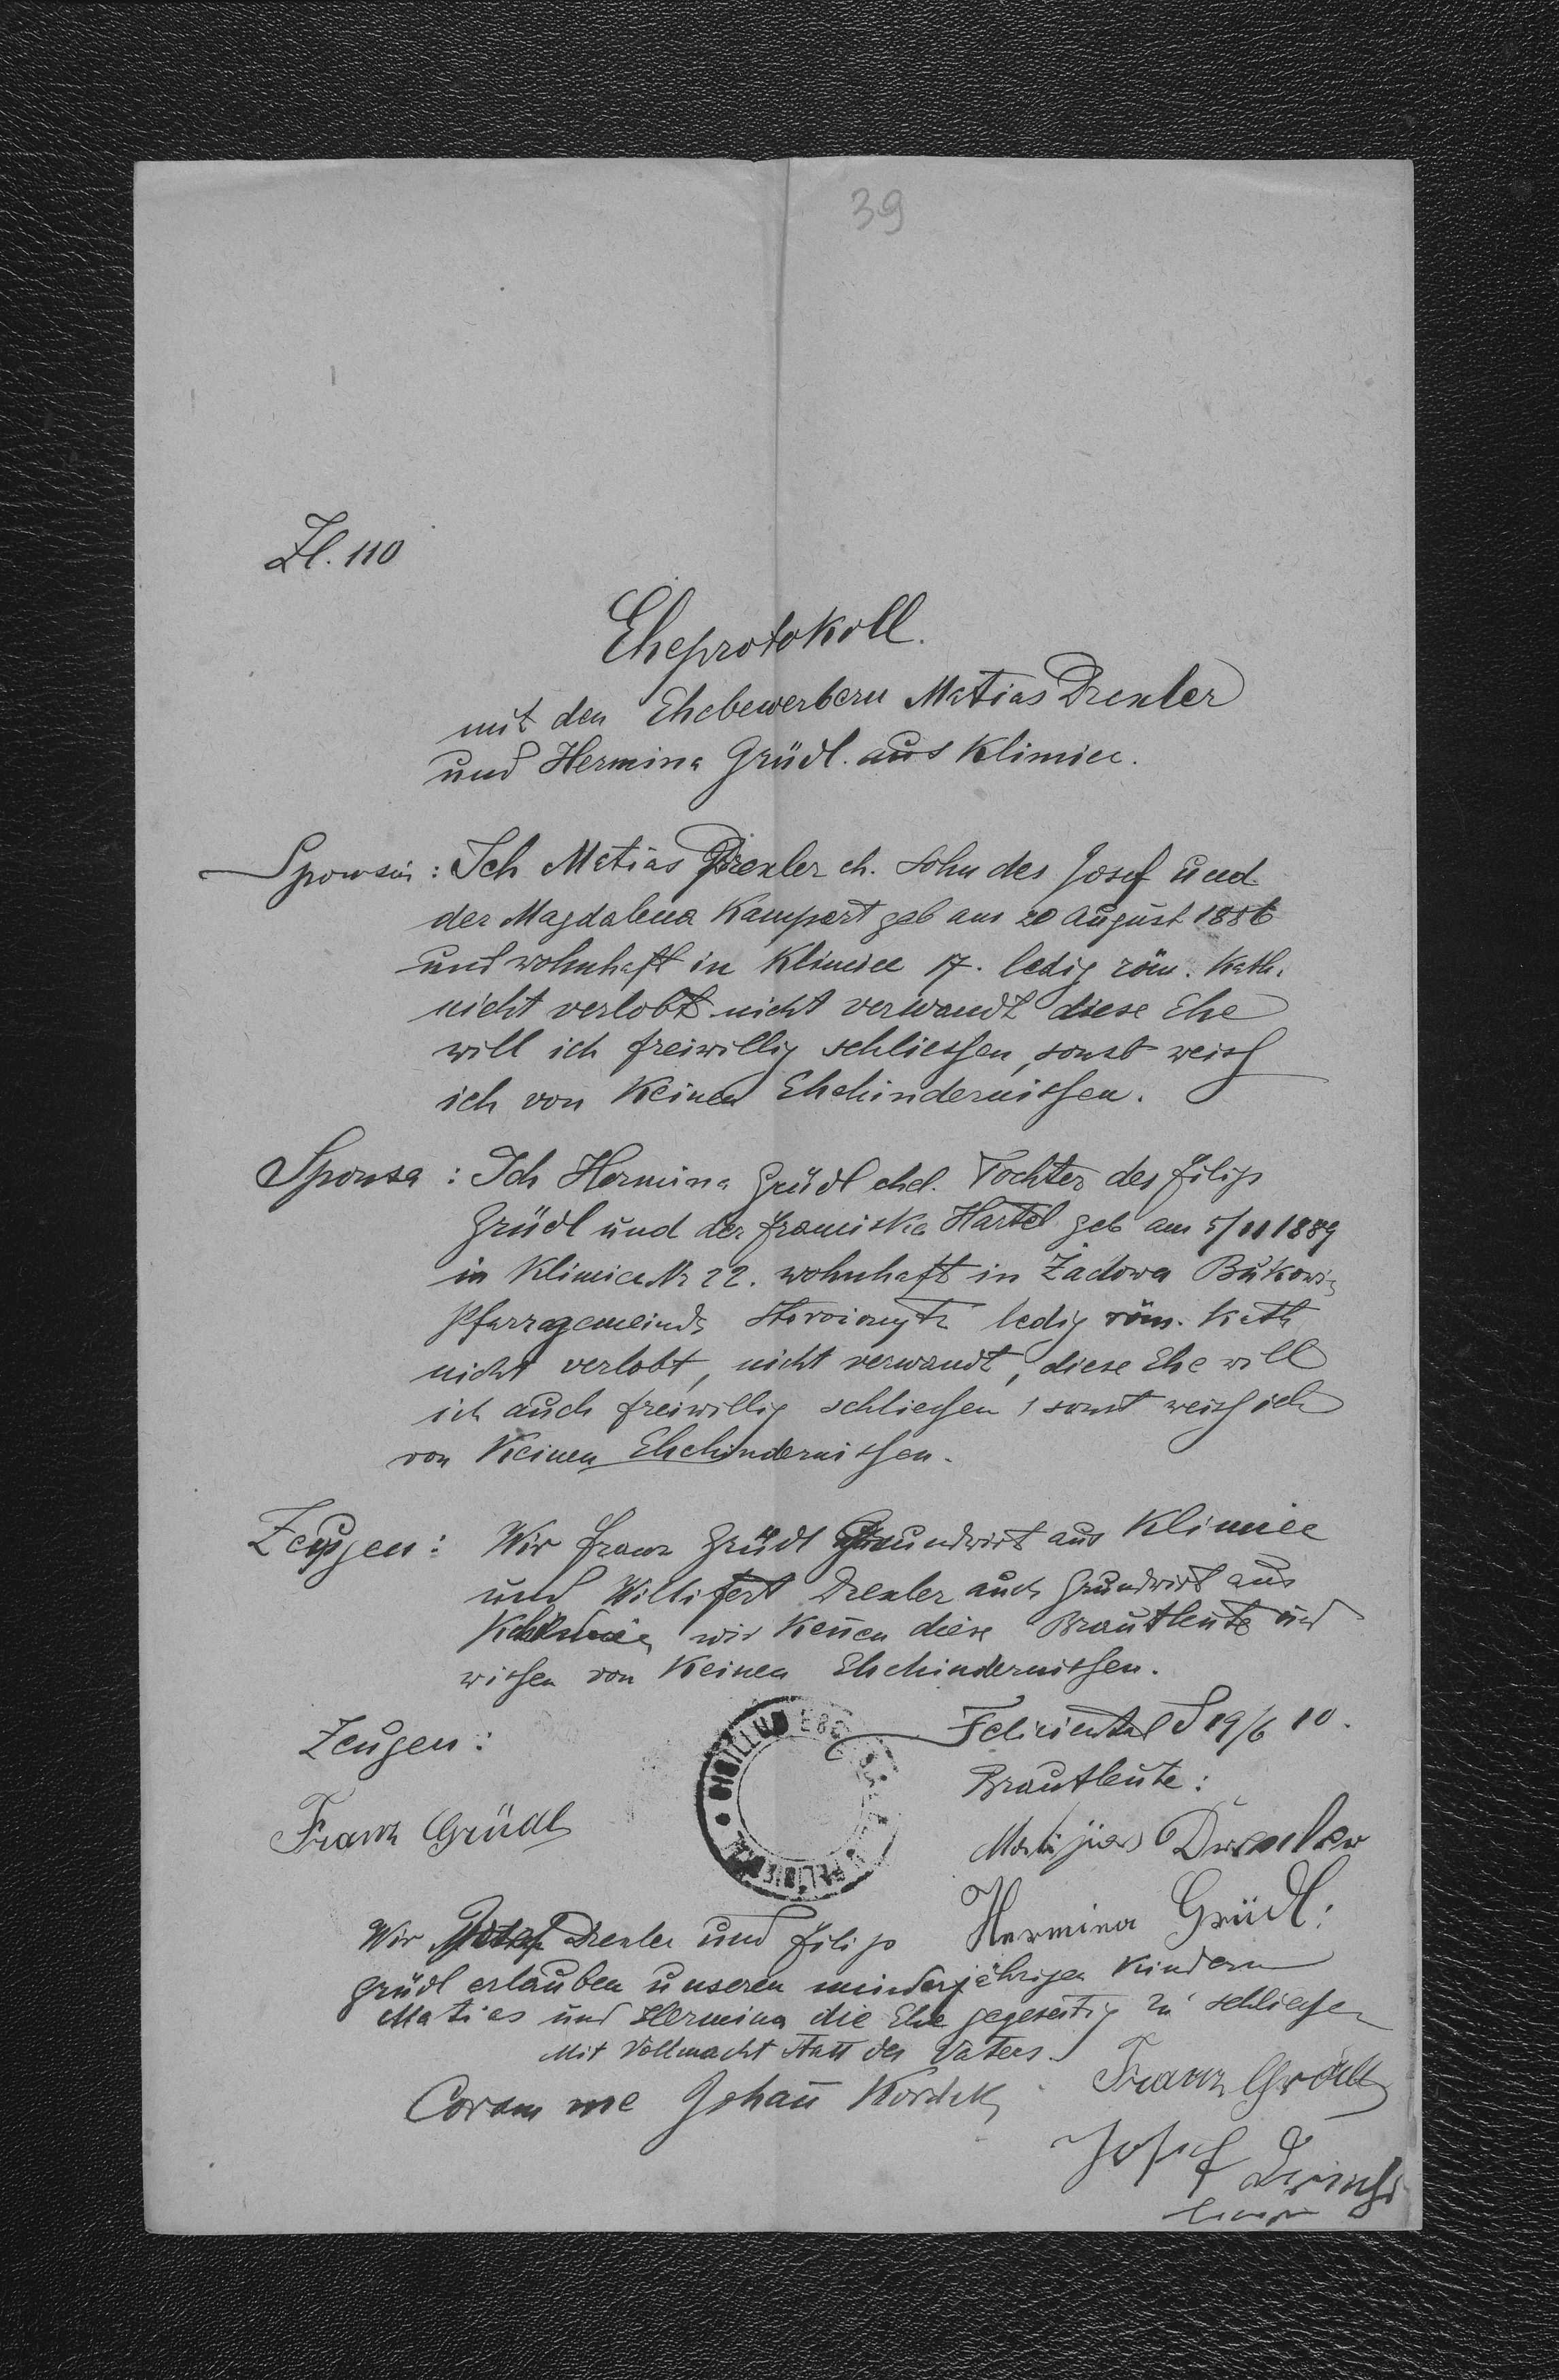 39
Zl. 110
Eheprotokoll.
mit den Ehebewerbern Matias Drexler
und Hermina Grüdl. aus Klimiec.
Sponsus: Ich Matias Drexler eh. Sohn des Josef und
der Magdalena Kampert geb am 20 August 1886
und wohnhaft in Klimiec 17. ledig röm. kath.
nicht verlobt nicht verwandt diese Ehe
will ich freiwillig schliessen, sonst weiss
ich von keinen Ehehindernissen.
Sponsa: Ich Hermina Grüdl ehel. Tochter des Filip
Grüdl und der Franciska Hartel geb am 5/11 1889
in Klimiec Nr 22. wohnhaft in Zadowa Bukowi
Pfarrgemeinde ledig röm. kath
nicht verlobt, nicht verwandt, diese Ehe will
ich auch freiwillig schliessen, sonst weiss ich
von keinen Ehehindernissen.
Zeugen: Wir Franz Grüdl Grundwirt aus Klimiec
und Drexler auch Grundwirt aus
Klimiec wir keñen diese Brautleute und
wissen von keinen Ehehindernissen.
Zeugen: Felicienthal 19/6 10.
Brautleute:
Franz Grüdl Drexler
SIGILLUM
Hermina Grüdl:
Wir Josef Drexler und Filip
Grüdl erlauben unseren minderjährigen Kindern
Matias und Hermina die Ehe gegeseitig zu schliessen
Mit Vollmacht statt des Vaters.
Franz Grüdl
Coram me Johañ
Josef